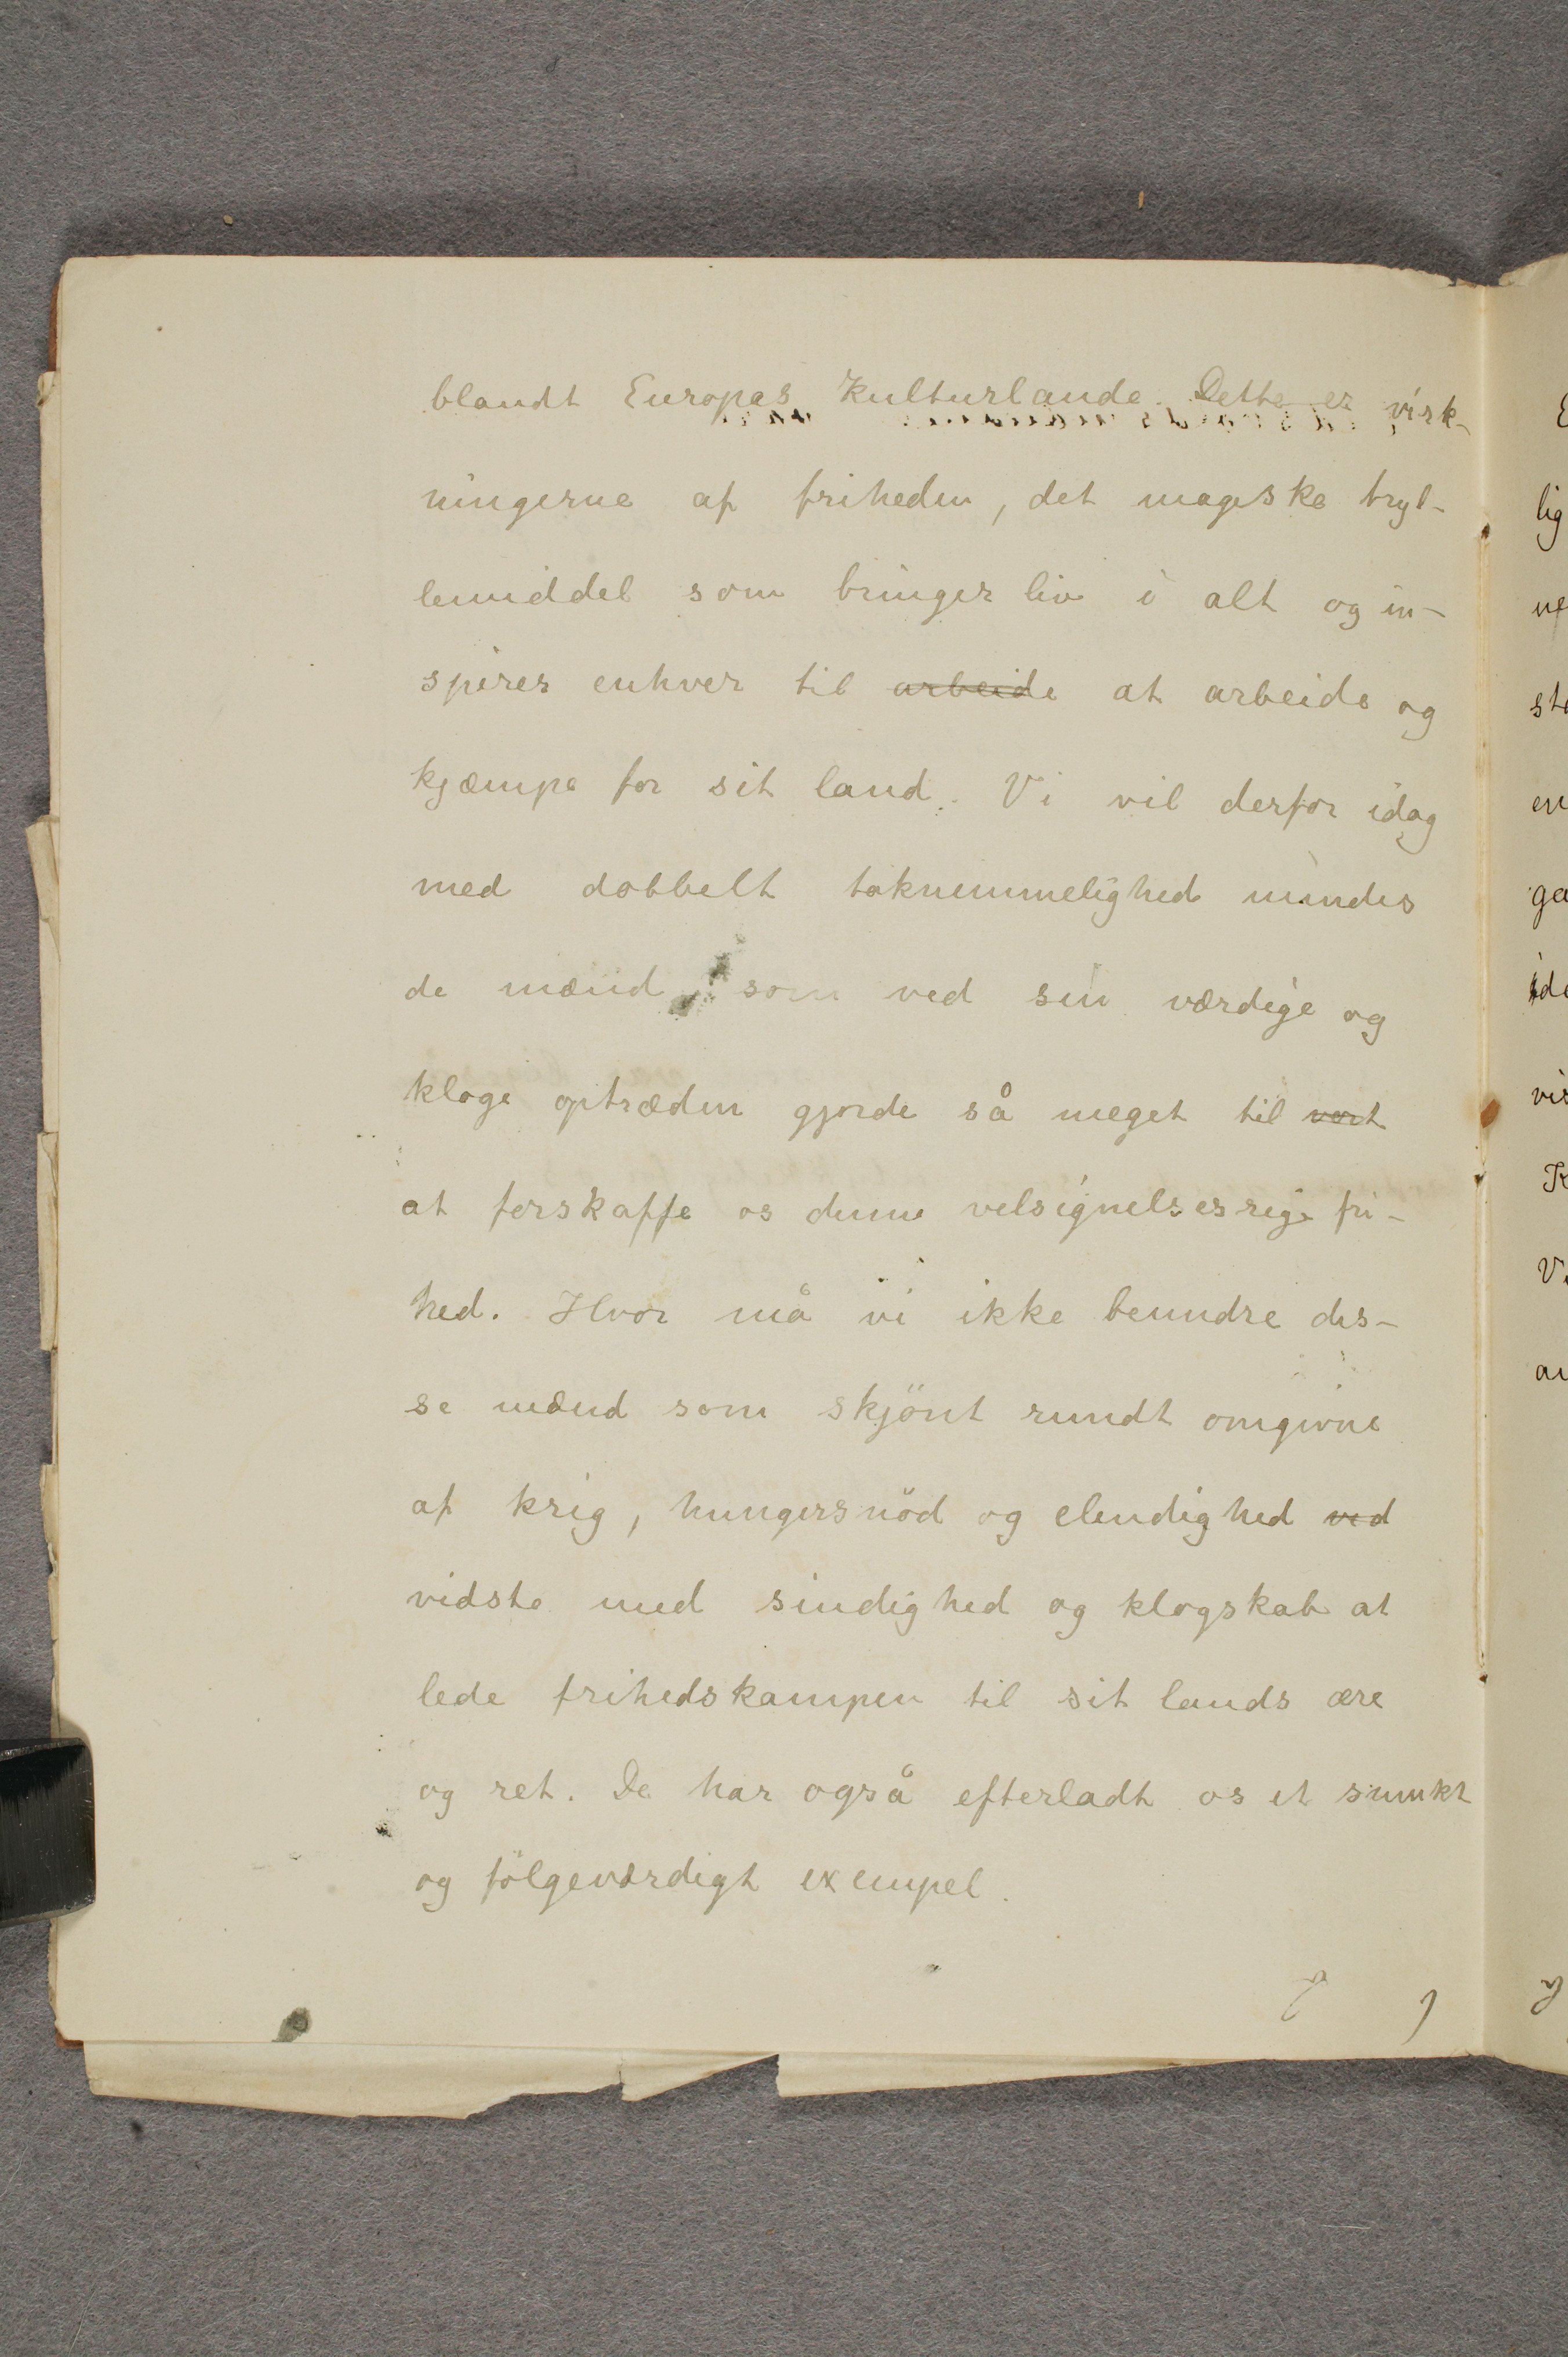 blandt Europas Kulturlande. Dette er virk-
ningerne af friheden, det magiske tryl-
lemiddel som bringer liv i alt og in-
spirer enhver til arbeide at arbeide og
kjæmpe for sit land. Vi vil derfor idag
med dobbelt taknemmelighed mindes
de mænd som ved sin værdige og
kloge optræden gjorde så meget til vort
at forskaffe os denne velsignelsesrige fri-
hed. Hvor må vi ikke beundre dis-
se mænd som skjönt rundt omgivne
af krig, hungersnöd og elendighed ved
vidste med sindighed og klogskab at
lede frihedskampen til sit lands ære
og ret. De har også efterladt os et smukt
og fölgeværdigt exempel.
lig